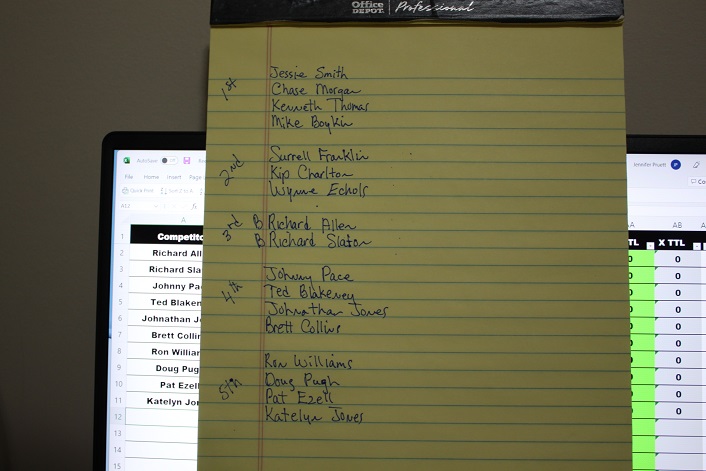 Office DEPOT | Professional
1st
Jessie Smith
Chase Morgan
Kenneth Thomas
Mike Boykin
2nd
Surrell Franklin
Kip Charlton
Wynne Echols
3rd
B Richard Allen
B Richard Slaton
4th
Johnny Pace
Ted Blakeney
Johnathan Jones
Brett Collins
5th
Ron Williams
Doug Pugh
Pat Ezell
Katelyn Jones
AutoSave Off
Jennifer Pruett JP
File Home Insert Page
Quick Print Sort Z to A
A12 fx
A
AB
1 Competito
TL X TTL
2 Richard All
0 0
3 Richard Sla
0 0
4 Johnny Pa
0 0
5 Ted Blaken
0 0
6 Johnathan J
0 0
7 Brett Collin
0 0
8 Ron Willian
0 0
9 Doug Pug
0 0
10 Pat Ezell
0 0
11 Katelyn Jon
0 0
12
13
14
15